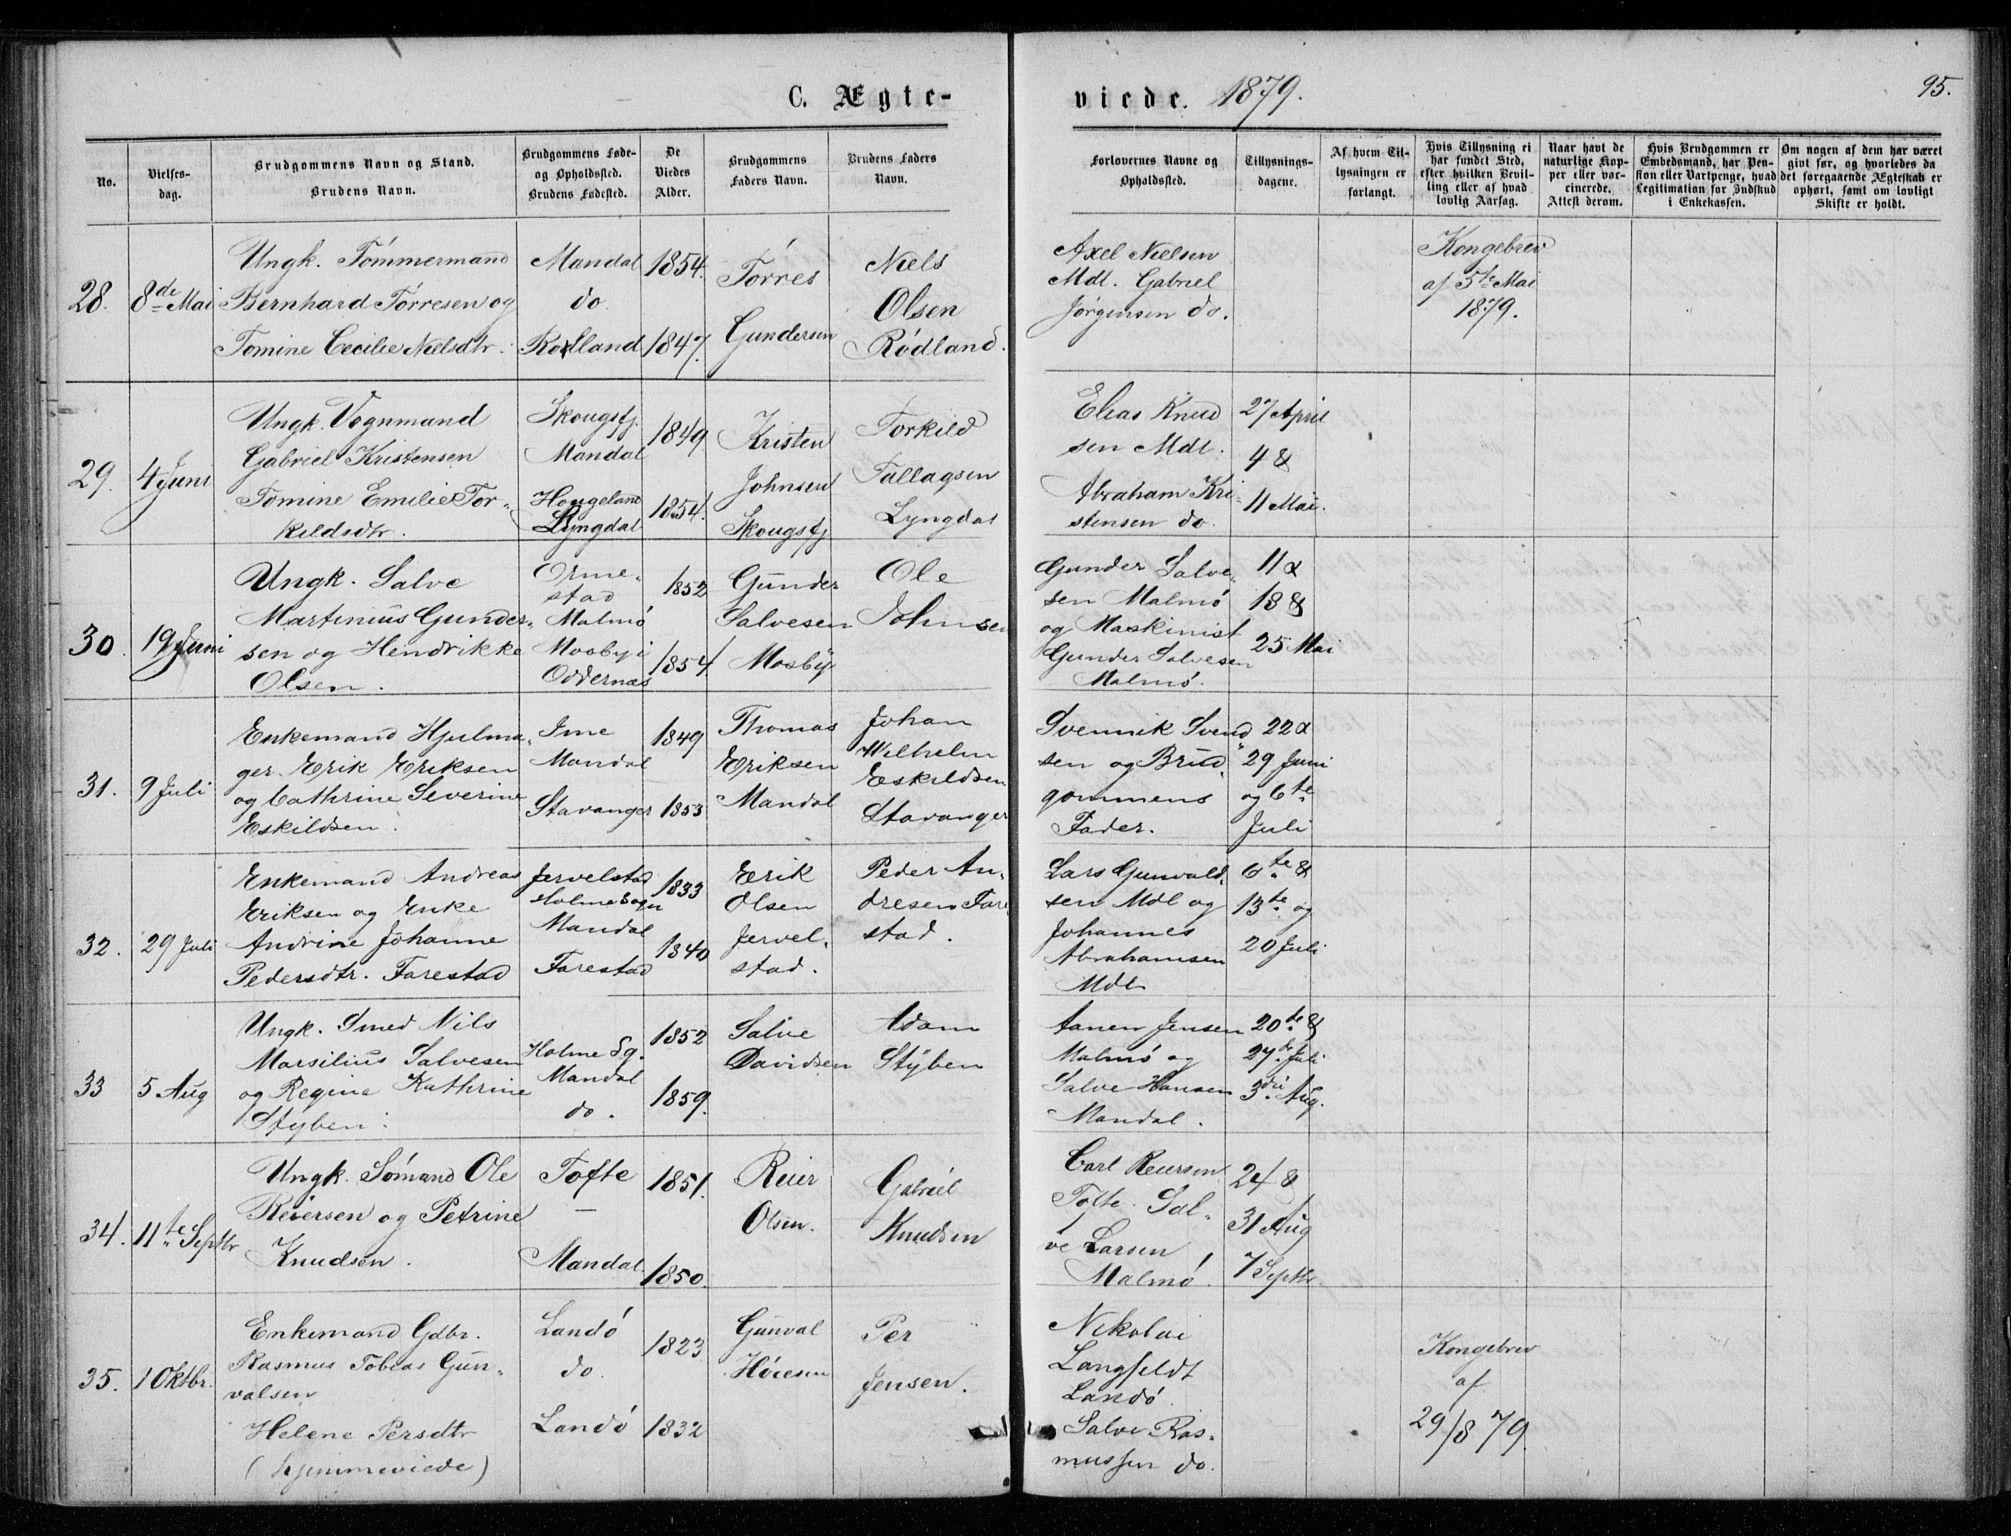 C. Ægte-
viede. 1879.
95.
No.
Vielses-
dag.
Brudgommens Navn og Stand.
Brudens Navn.
Brudgommens Føde-
og Opholdssted.
Brudens Fødested.
De
Viedes
Alder.
Brudgommens
Faders Navn.
Brudens Faders
Navn.
Forlovernes Navne og
Opholdssted.
Tillysnings-
dagene.
Af hvem Til-
lysningen er
forlangt.
Hvis Tillysning ei
har fundet Sted,
efter hvilken Bevil-
ling eller af hvad
lovlig Aarsag.
Naar havt de
naturlige Kop-
per eller vac-
cinerede.
Attest derom.
Hvis Brudgommen er
Embedsmand, har Pen-
sion eller Vartpenge, hvad
Legitimation for Indskud
i Enkekassen.
Om nogen af dem har været
givt før, og hvorledes da
det foregaaende Ægteskab er
ophørt, samt om lovligt
Skifte er holdt.
28.
8de Mai
Ungk. Tømmermand
Bernhard Tørresen og
Tomine Cecilie Nielsdtr.
Mandal
do
Rødland
1854.
1847.
Tørres
Gundersen
Niels
Olsen
Rødland.
Axel Nielsen
Mdl. Gabriel
Jørgensen do.
Kongebrev
af 5te Mai
1879.
29.
4 Juni
Ungk. Vognmand
Gabriel Kristensen
Tomine Emilie Tor-
kildsdtr.
Skougsfj.
Mandal
Hougeland
Lyngdal
1849
1854.
Kristen
Johnsen
Skougsfj
Torkild
Tallagsen
Lyngdal
Elias Knud
sen Mdl.
Abraham Kri-
stensen do.
27 April
4 &
11 Mai.
30.
19 Juni
Ungk. Salve
Martinius Gunder-
sen og Hendrikke
Olsen.
Orme-
stad
Malmø
Mosby i
Oddernæs
1852
1854
Gunder
Salvesen
Mosby
Ole
Johnsen
Gunder Salve-
sen Malmø
og Maskinist
Gunder Salvesen
Malmø.
11 &
18 &
25 Mai
31.
9 Juli
Enkemand Hjulma-
ger. Erik Eriksen
og Cathrine Severine
Eskildsen.
Ime
Mandal
Stavanger
1849
1853
Thomas
Eriksen
Mandal
Johan
Wilhelm
Eskildsen
Stavanger
Svennik Svend
sen og Brud-
gommens
Fader.
22 &
29 Juni
og 6te
Juli
32.
29 Juli
Enkemand Andreas
Eriksen og Enke
Andrine Johanne
Pedersdtr. Farestad
Jervelstad
Holme Sogn
Mandal
Farestad
1833
1840
Erik
Olsen
Jervel-
stad.
Peder An-
dresen Fare
stad.
Lars Gunvald-
sen Mdl og
Johannes
Abrahamsen
Mdl
6te &
13te og
20 Juli
33
5 Aug
Ungk. Smed Nils
Marsilius Salvesen
og Regine Kathrine
Styben.
Holme Sg.
Mandal
do.
1852
1859.
Salve
Davidsen
Adam
Styben
Aanen Jensen
Malmø og
Salve Hansen
Mandal.
20de &
27de Juli
3die Aug.
34.
11te Septbr
Ungk. Sømand Ole
Reiersen og Petrine
Knudsen.
Tofte
—
Mandal
1851.
1850.
Reier
Olsen.
Gabriel
Knudsen
Carl Reiersen
Tofte. Sal-
ve Larsen
Malmø.
24/8
31 Aug
7 Septbr
35.
1 Oktbr.
Enkemand Gdbr.
Rasmus Tobias Gun-
valsen
Helene Persdtr
(hjemmeviede)
Landø
do.
Landø
1823
1832
Gunval
Høiesen
Per
Jensen.
Nikolai
Langfeldt
Landø
Salve Ras-
mussen do.
Kongebrev
af
29/8 79.